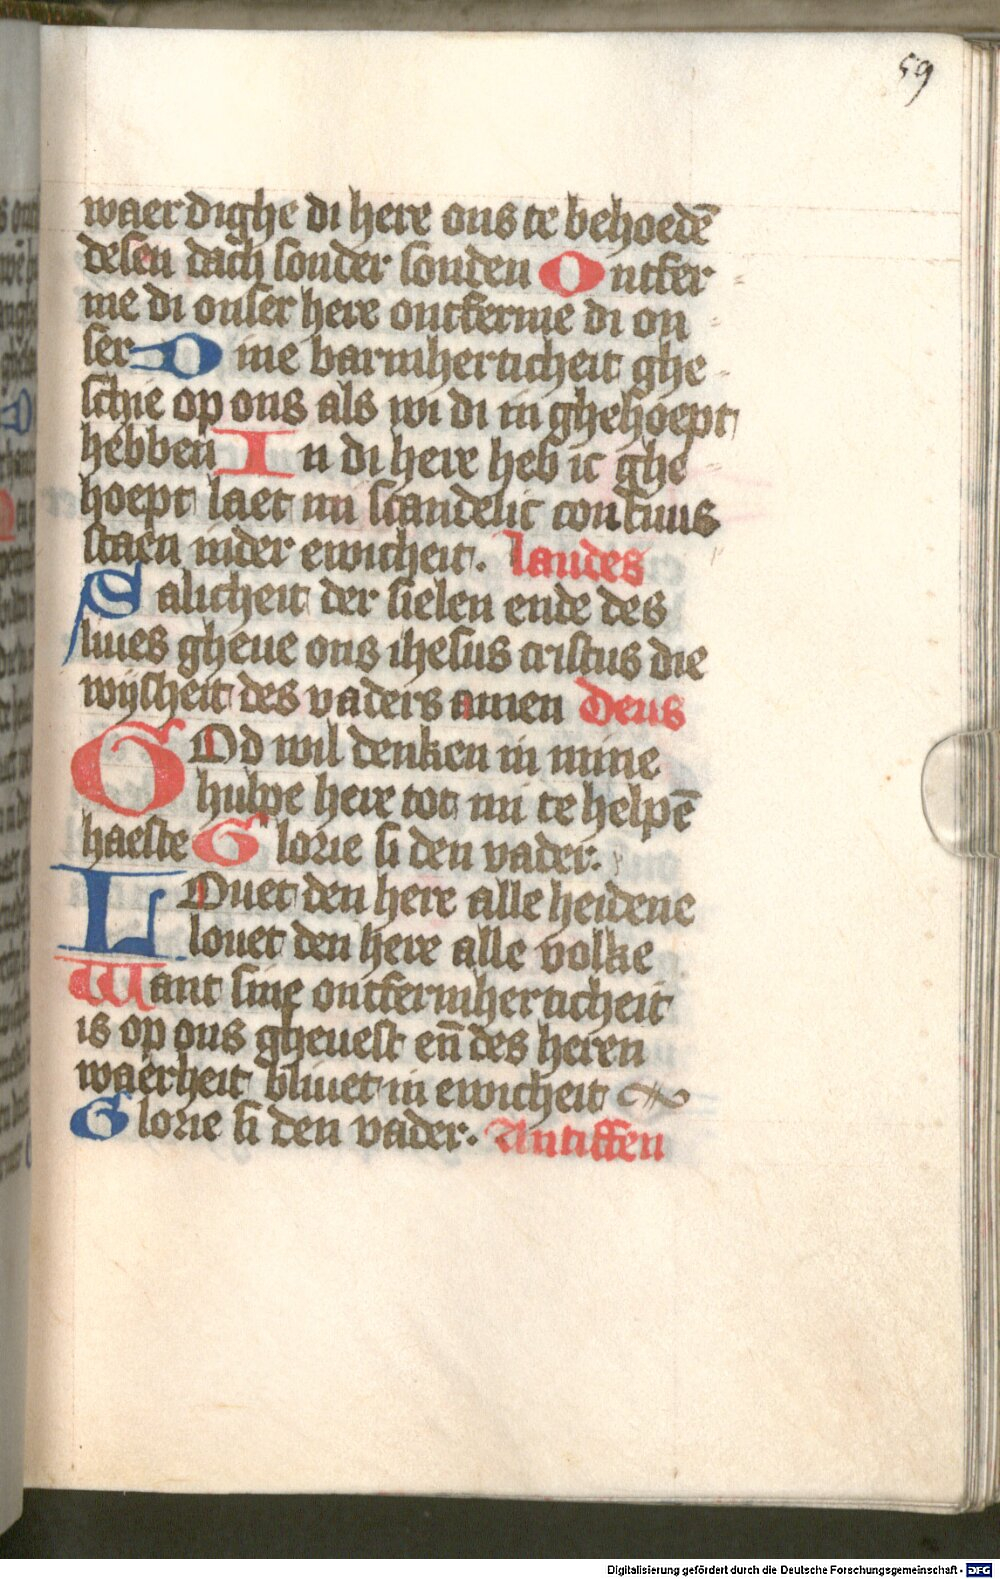 59
waerdighe di here ons te behoedē
desen dach sonder sonden Ontfer
me di onser here ontferme di on
ser Dine barmherticheit ghe
schie op ons als wi di in ghehoept
hebben In di here heb ic ghe
hoept laet mi scandelic confuus
staen inder ewicheit. laudes
Salicheit der sielen ende des
liues gheue ons ihesus cristus die
wijsheit des vaders amen Deus
GOd wil denken in mine
hulpe here tot mi te helpē
haeste Glorie si den vader.
LOuet den here alle heidene
louet den here alle volke
Want sine ontfermherticheit
is op ons gheuest eñ des heren
waerheit bliuet in ewicheit
Glorie si den vader. Antiffen
Digitalisierung gefördert durch die Deutsche Forschungsgemeinschaft - DFG